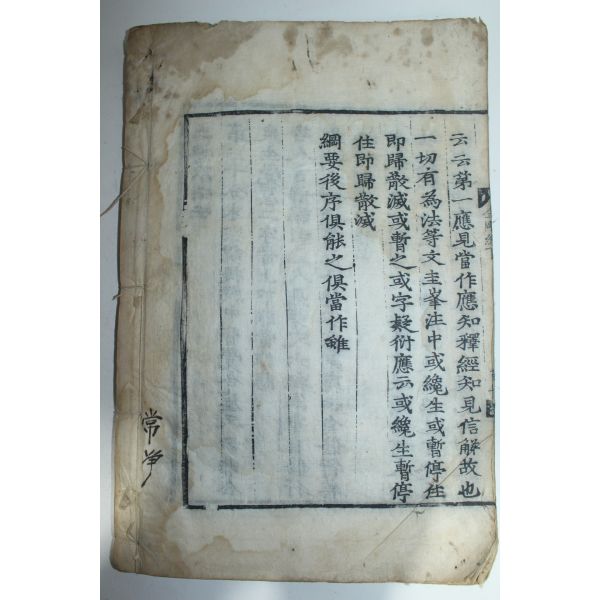 云云第一應見當作應知釋經知見信解故也
一切有為法等文圭峯注中或纔生或暫停住
即歸散滅或暫之或字疑衍應云或纔生暫停
住即歸散滅
綱要後序俱能之俱當作雖
常淨